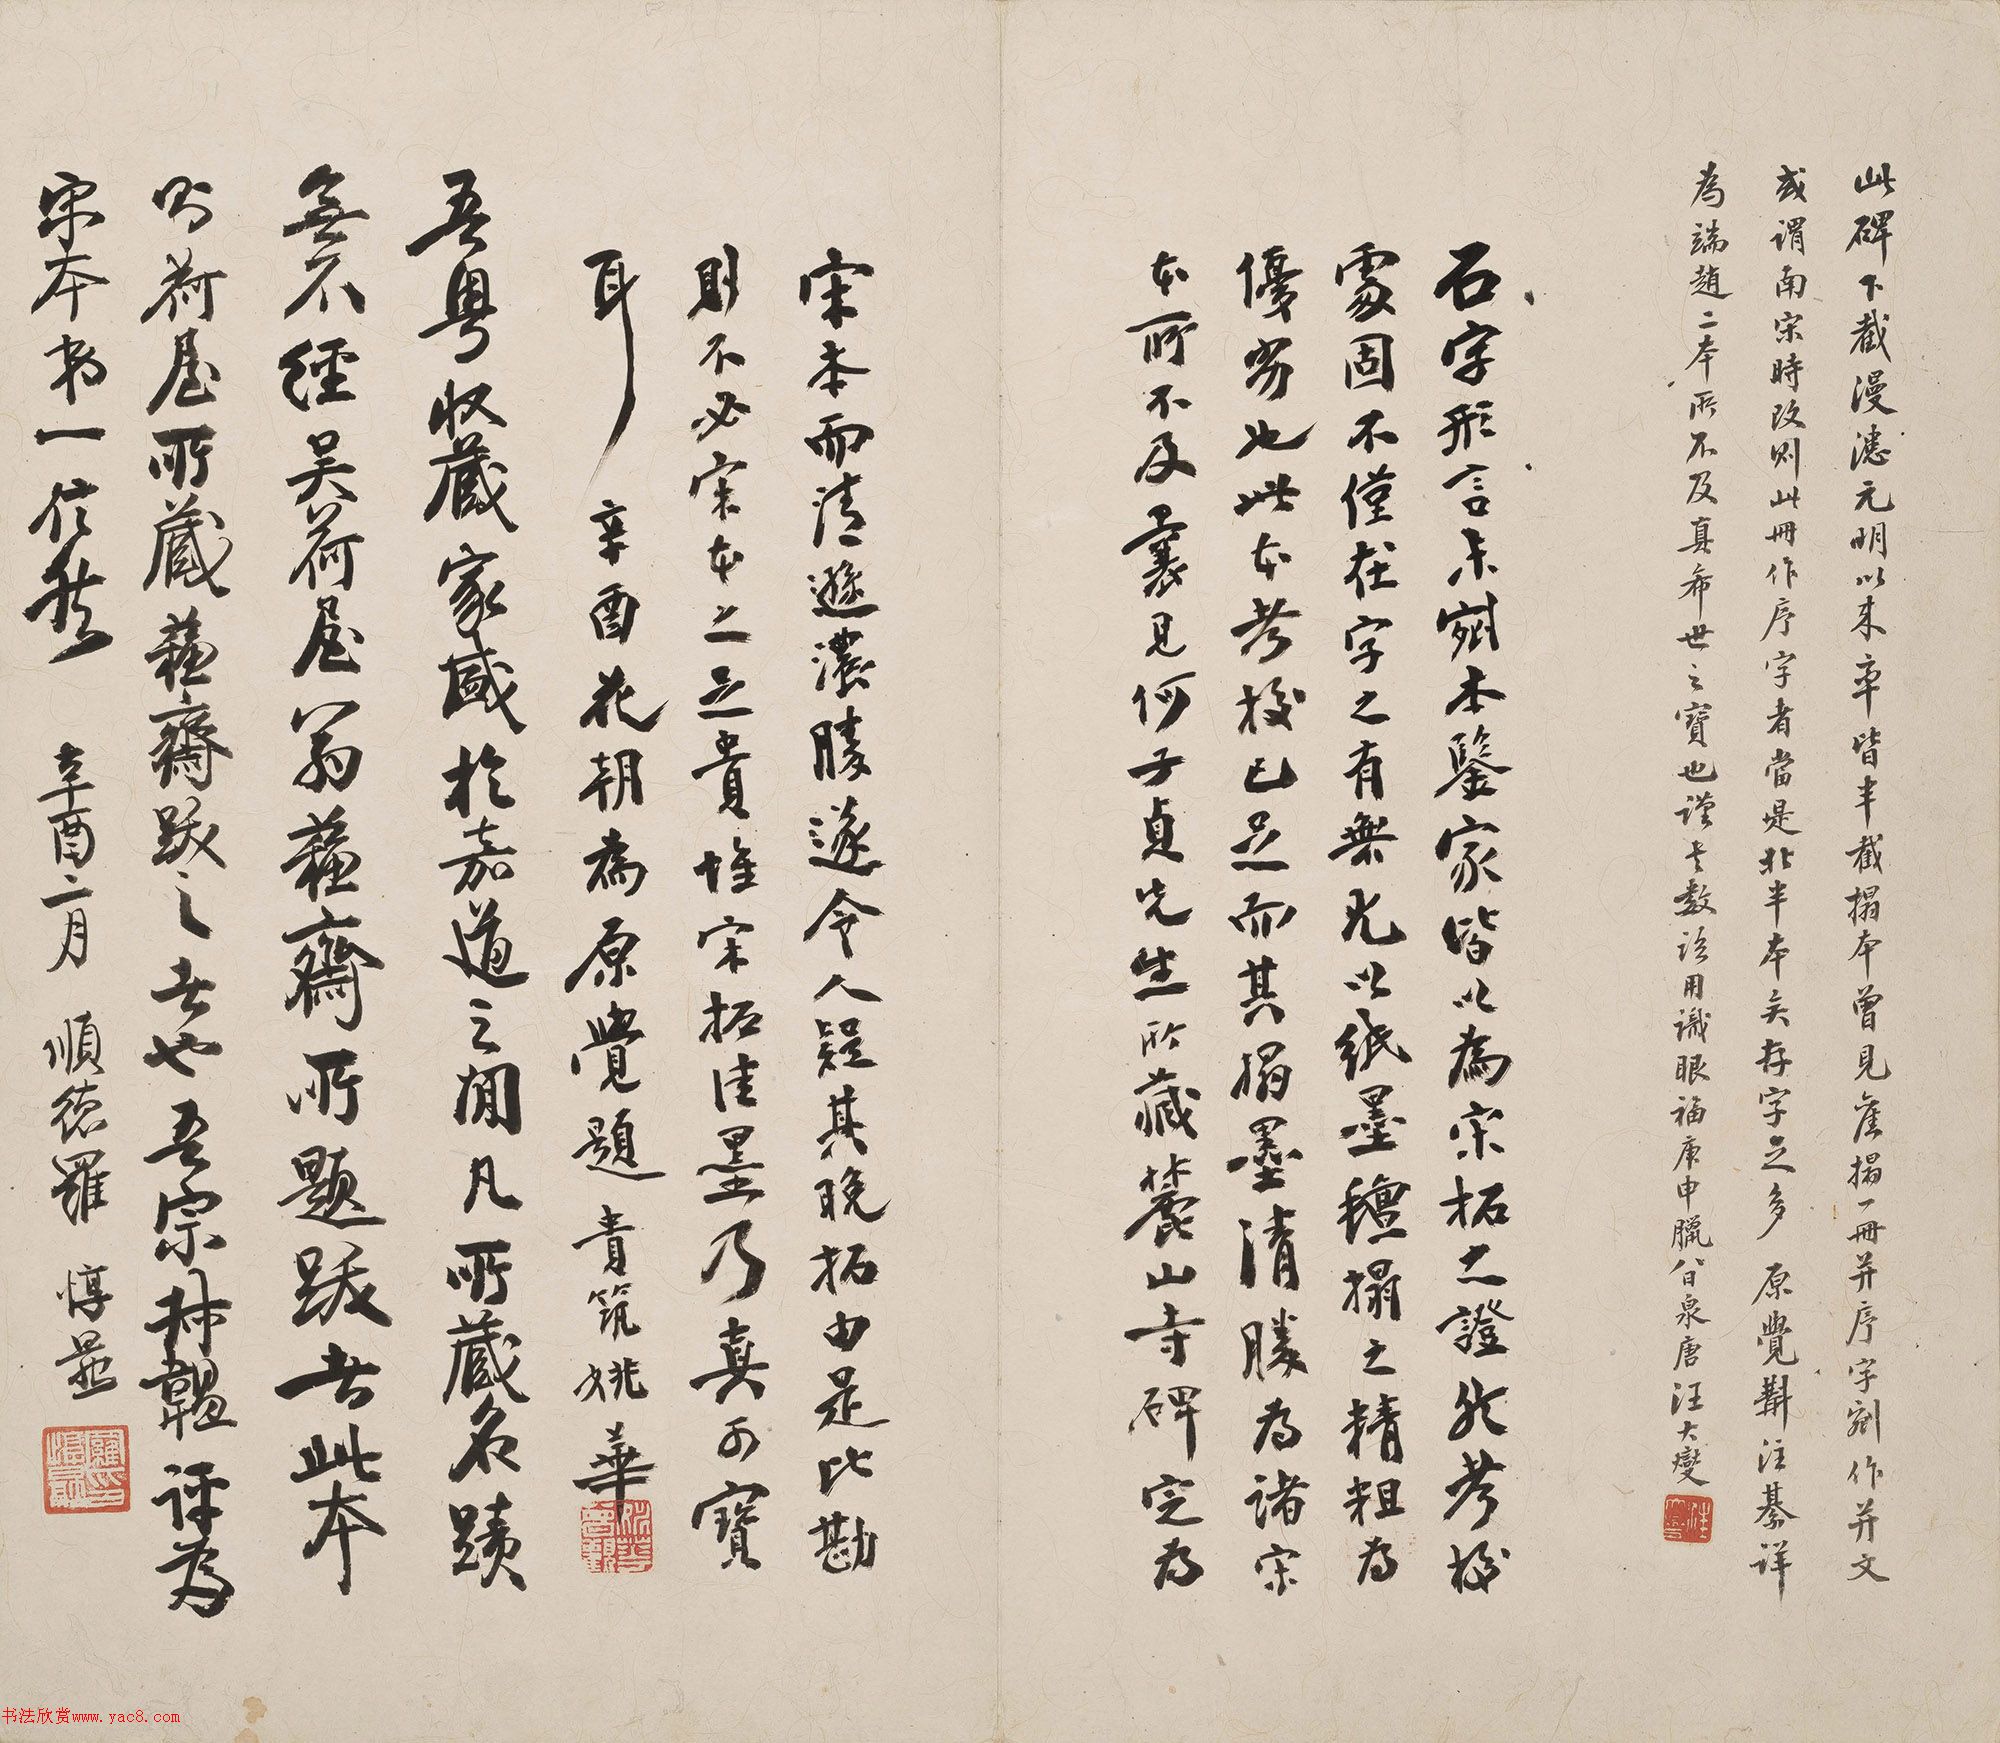 此碑下截漫漶元明以来率皆半截搨本曾見舊搨一冊并序字剜作并文
或謂南宋時改則此冊作序字者當是北半本矣存字之多 原覺斠注綦詳
為端趙二本所不及真希世之寶也謹書數語用識眼福庚申臘八日泉唐汪大燮
石字形言未剜本鑒家皆以為宋拓之證然考校
家固不僅在字之有無尤以紙墨氈搨之精粗為
優劣也此本考校已足而其搨墨清勝為諸宋
本所不及曩見何子貞先生所藏麓山寺碑定為
宋本而清遒濃勝遂令人疑其晚拓由是比勘
則不必宋本之足貴惟宋拓佳墨乃真可寶
耳 辛酉花朝為原覺題 貴筑姚華
吾粵收藏家盛於嘉道之間凡所藏名蹟
無不經吳荷屋翁蘇齋所題跋者此本
則荷屋所藏蘇齋跋之者也吾宗叔韞評為
宋本第一信然 辛酉二月 順德羅惇㬊
书法欣赏www.yac8.com